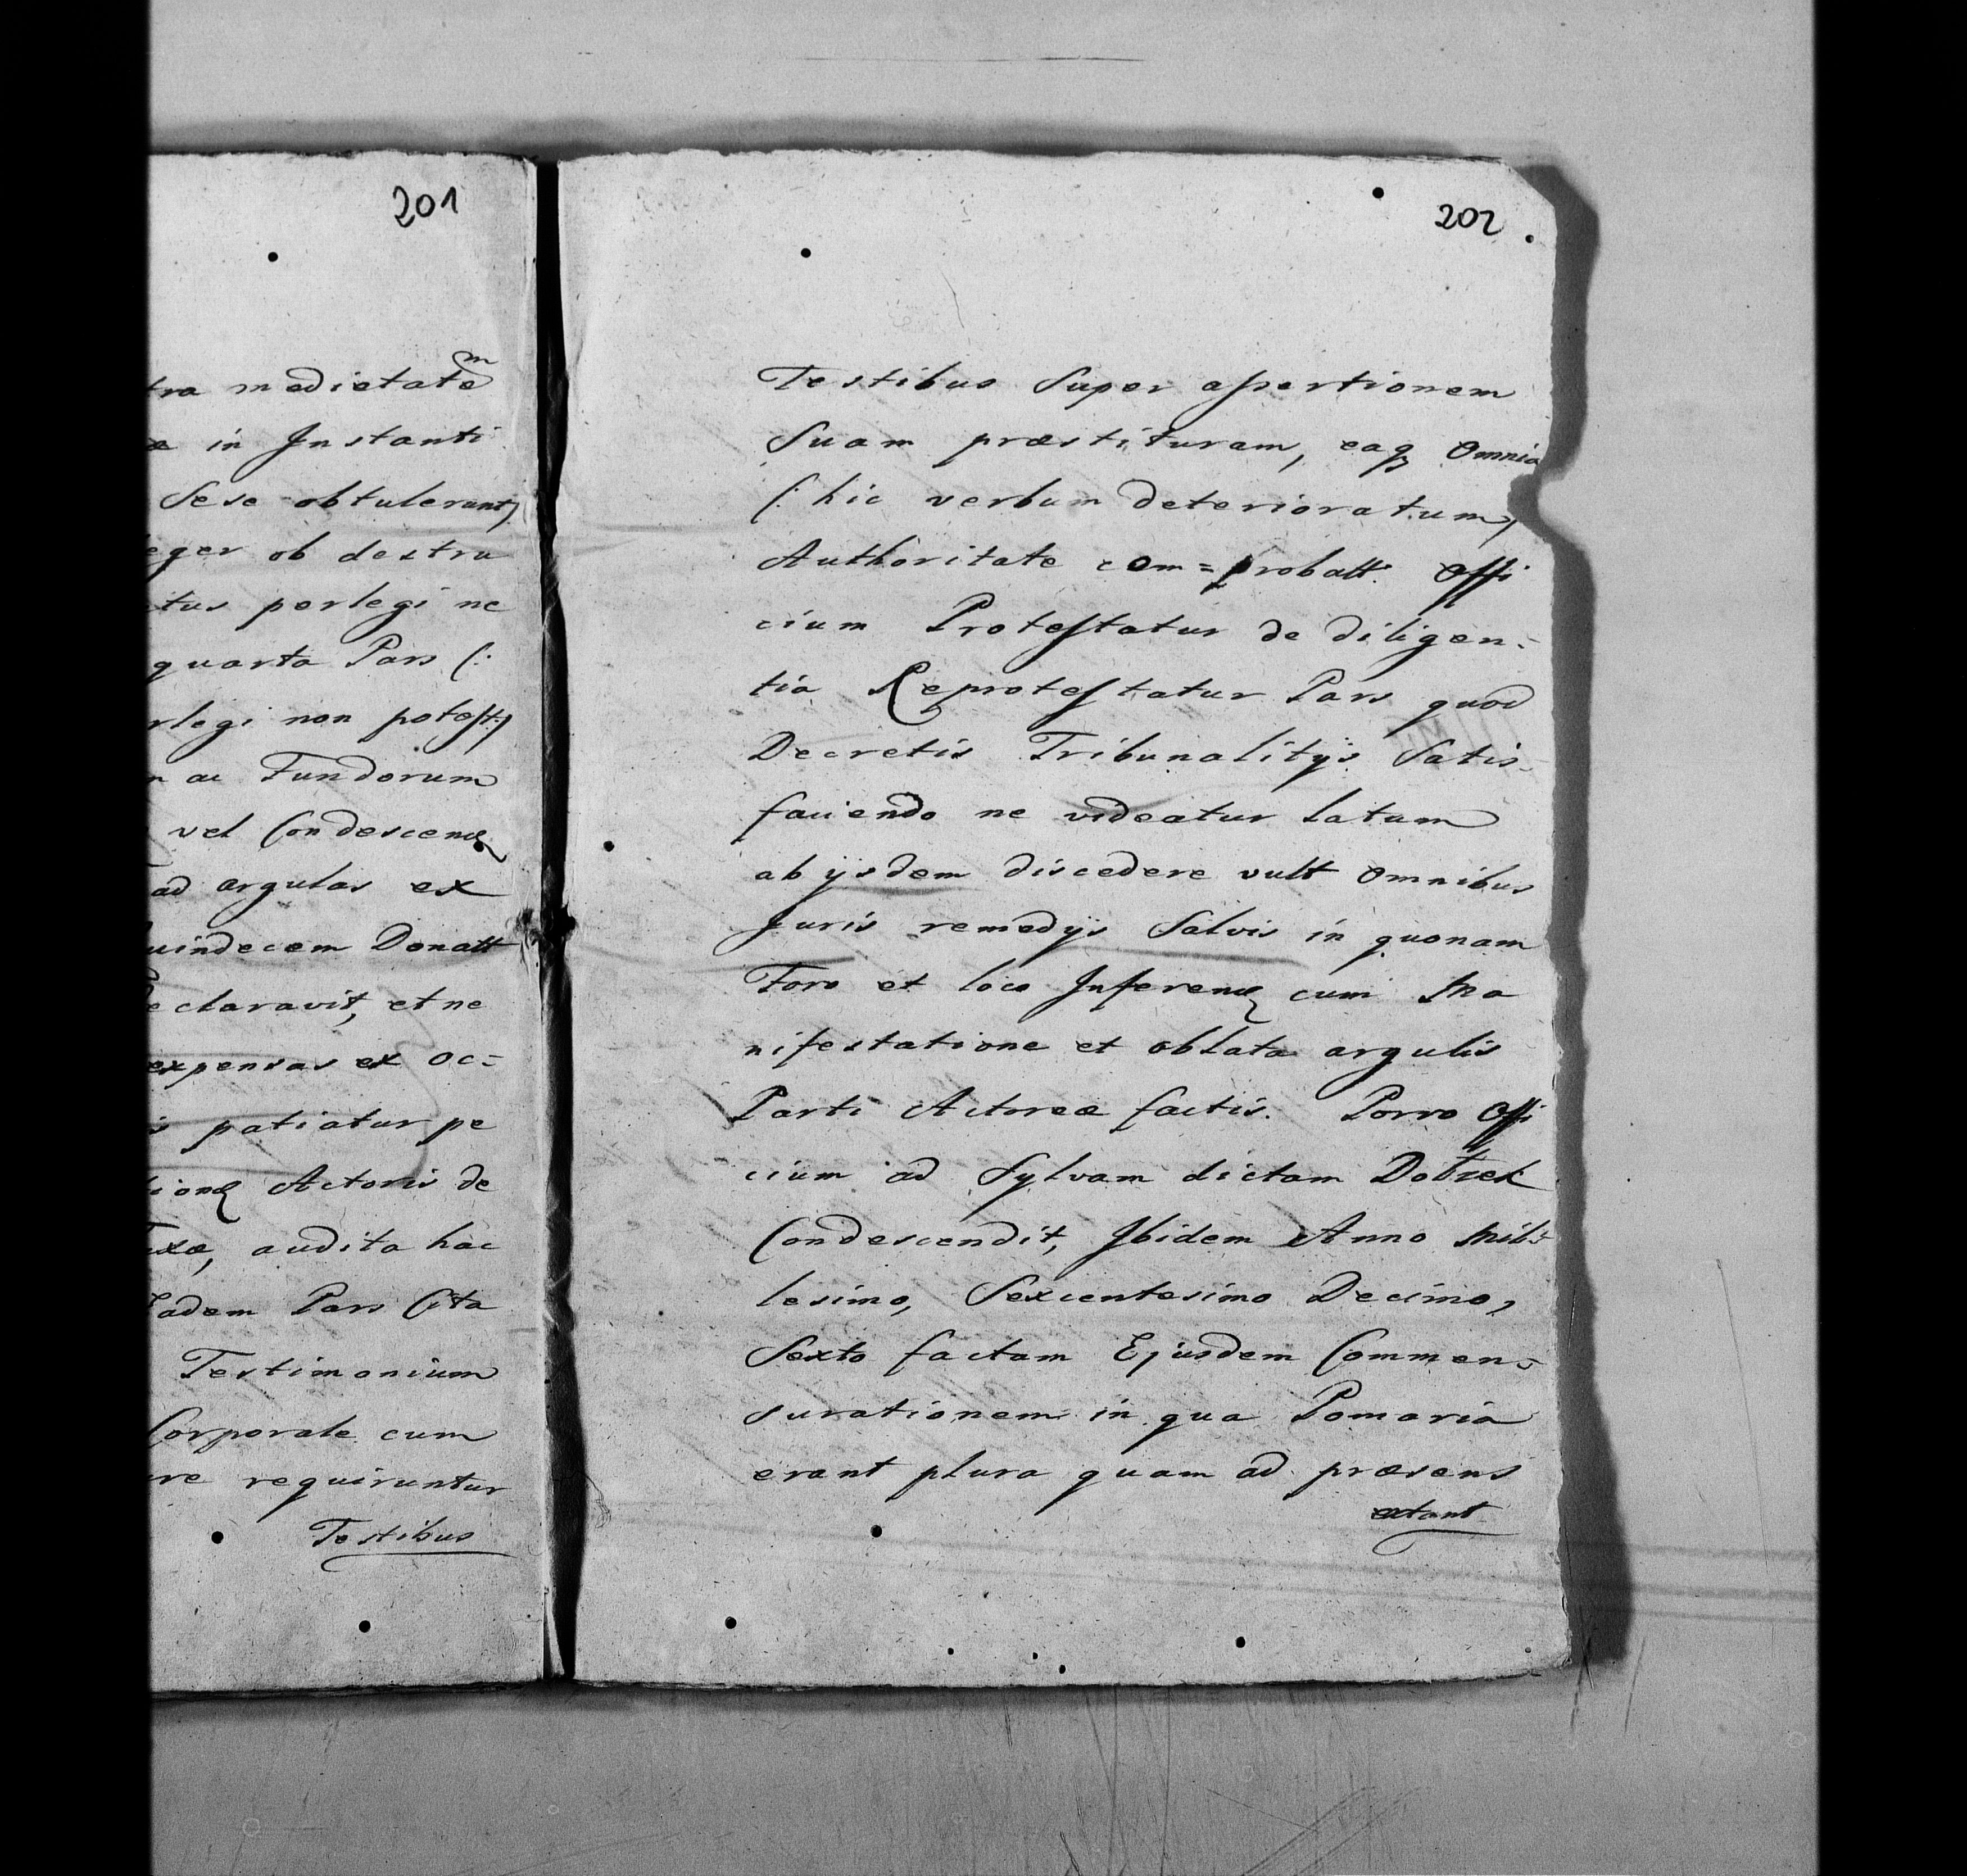 201
tra medietatem
æ in Instanti
Sese obtulerunt)
eger ob destru
tus perlegi ne
quarta Pars (:
rlegi non potest:)
n ac Fundorum
vel Condescen
ad argulas ex
uindecem Donatt
eclaravit, et ne
expensas ex oc=
s patiatur pe
Actoris de
uxæ, audita hac
adem Pars Cita
Testimonium
Corporale cum
ure requiruntur
Testibus
202
Testibus Super assertionem
Suam præstituram, eaq Omnia
(: hic verbum deterioratum)
Authoritate com=probatt. Offi
cium Protestatur de diligen=
tia Reprotestatur Pars quod
Decretis Tribunalitÿs Satis=
faciendo ne videatur latum
ab ÿsdem discedere vult Omnibus
Juris remedÿs Salvis in quonam
Foro et loco Inferen cum Ma
nifestatione et oblata argulis
Parti Actoreæ factis. Porro Offi
cium ad Sylvam dictam
Condescendit, Ibidem Anno Mil=
lesimo, Sexcentesimo Decimo,
Sexto factam Ejusdem Commen=
surationem in qua Pomaria
erant plura quam ad præsens
extant